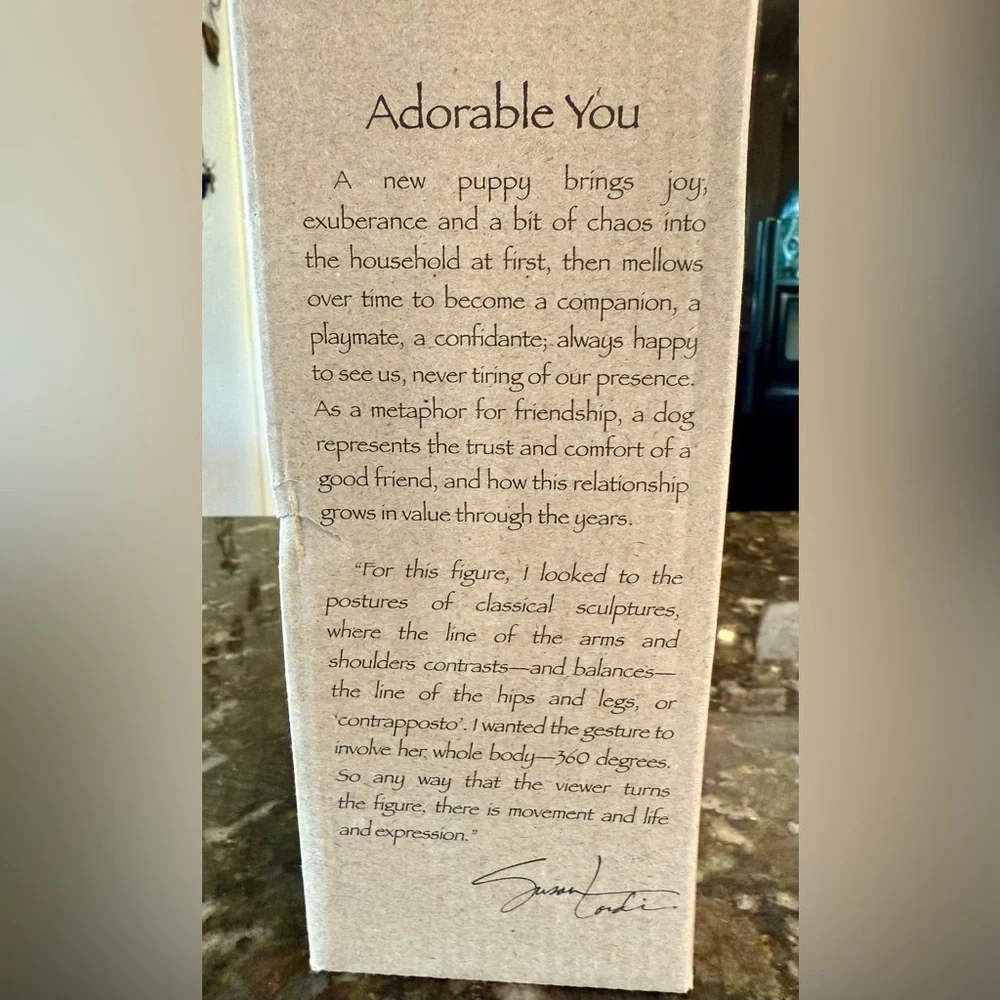 Adorable You
A new puppy brings joy,
exuberance and a bit of chaos into
the household at first, then mellows
over time to become a companion, a
playmate, a confidante; always happy
to see us, never tiring of our presence.
As a metaphor for friendship, a dog
represents the trust and comfort of a
good friend, and how this relationship
grows in value through the years.
“For this figure, I looked to the
postures of classical sculptures,
where the line of the arms and
shoulders contrasts—and balances—
the line of the hips and legs, or
‘contrapposto’. I wanted the gesture to
involve her whole body—360 degrees.
So any way that the viewer turns
the figure, there is movement and life
and expression.”
Susan Lordi